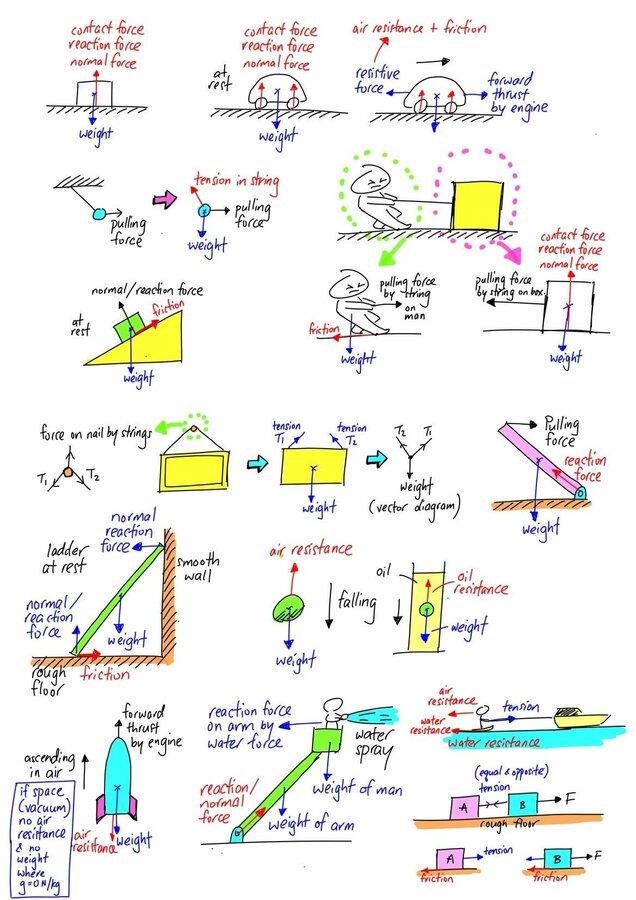 contact force
reaction force
normal force
weight
at
rest
contact force
reaction force
normal force
weight
air resistance + friction
resistive
force
forward
thrust
by engine
weight
pulling
force
tension in string
pulling
force
weight
normal/reaction force
friction
at
rest
weight
pulling force
by string
on
man
friction
weight
contact force
reaction force
normal force
pulling force
by string on box
weight
force on nail by strings
T1
T2
tension
T1
tension
T2
weight
T2
T1
weight
(vector diagram)
Pulling
force
reaction
force
weight
normal
reaction
force
ladder
at rest
smooth
wall
normal/
reaction
force
weight
rough
floor
friction
air resistance
falling
weight
oil
oil
resistance
weight
forward
thrust
by engine
ascending
in air
if space
(vacuum)
no air
resitance
& no
weight
where
g=0N/kg
air
resistance
weight
reaction force
on arm by
water force
water
spray
weight of man
reaction/
normal
force
weight of arm
air
resistance
tension
water
resistance
water resistance
(equal & opposite)
tension
A
B
F
rough floor
A
tension
friction
B
F
friction